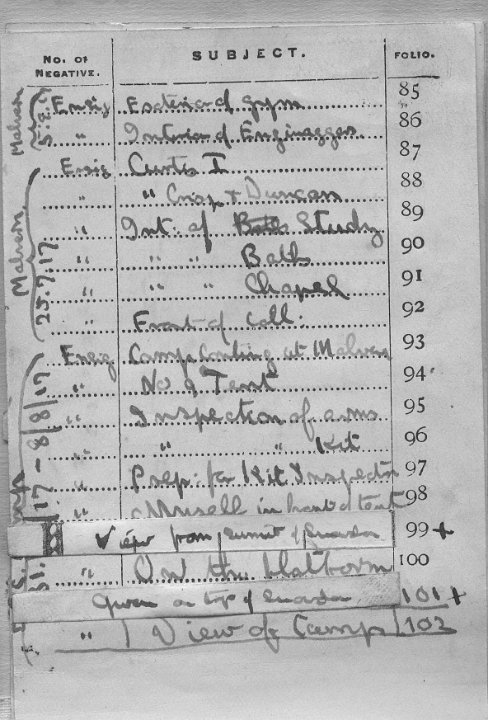 No. of Negative. SUBJECT. FOLIO.
Malvern
Ensig Exterior of gym 85
" Interior of 86
Ensig Curtis I 87
" " Crisp & Duncan 88
" Int: of Study 89
" " " Bath 90
" " " Chapel 91
" Front of Coll: 92
Malvern. 25.7.17
Ensig Camp Cooking at Malvern 93
" No 9 Tent 94
" Inspection of arms 95
" " " Kit 96
" Prep: for Kit Inspection 97
" Mussell in front of tent 98
View from summit of Snowdon 99 +
" On the Platform 100
on top of Snowdon 101 +
" View of Camp 102